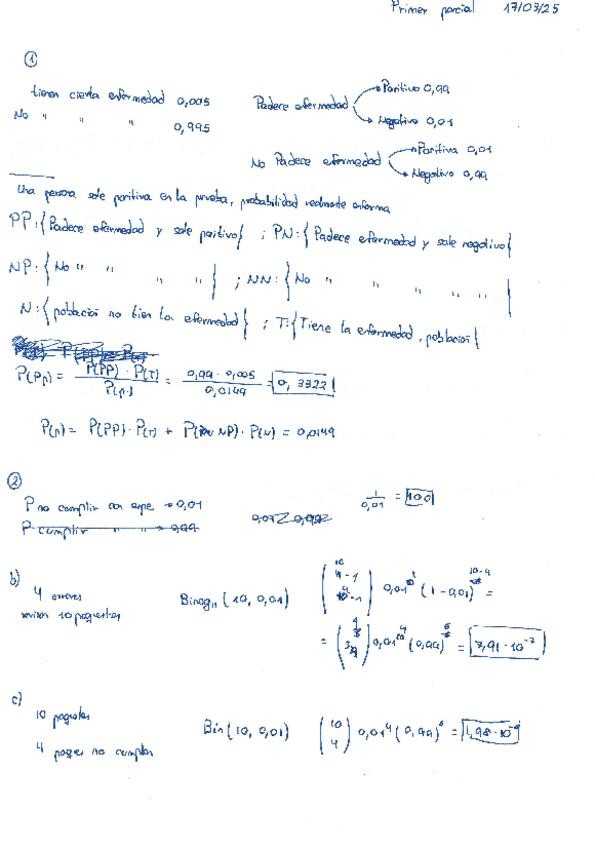 Primer parcial 17/03/25
①
tienen cierta enfermedad 0,005
No " " " 0,995
Padece enfermedad Positivo 0,99
Negativo 0,01
No Padece enfermedad Positiva 0,01
Negativo 0,99
Una persona sale positiva en la prueba, probabilidad realmente enferma
PP:{Padece enfermedad y sale positivo} ; PN:{Padece enfermedad y sale negativo}
NP:{No " " " "} ; NN:{No " " " " "}
N:{población no tien la enfermedad} ; T:{Tiene la enfermedad, población}
= P(PP) · P(T) / = 0,99 · 0,005 / 0,0149 = 0,3322
= P(PP) · P(T) + NP) · P(N) = 0,0149
②
P no cumplir con espe → 0,01
1/0,01 = 100
P cumplir " " → 0,99
b)
4 errores
revisar 10 paquetes
(10, 0,01)
0,01 (1 - 0,01)^10-4 =
= 0,01 (0,99) = 7,91 · 10^-7
c)
10 paquetes
4 no cumplan
Bin(10, 0,01) (10 4) 0,01^4 (0,99)^6 =